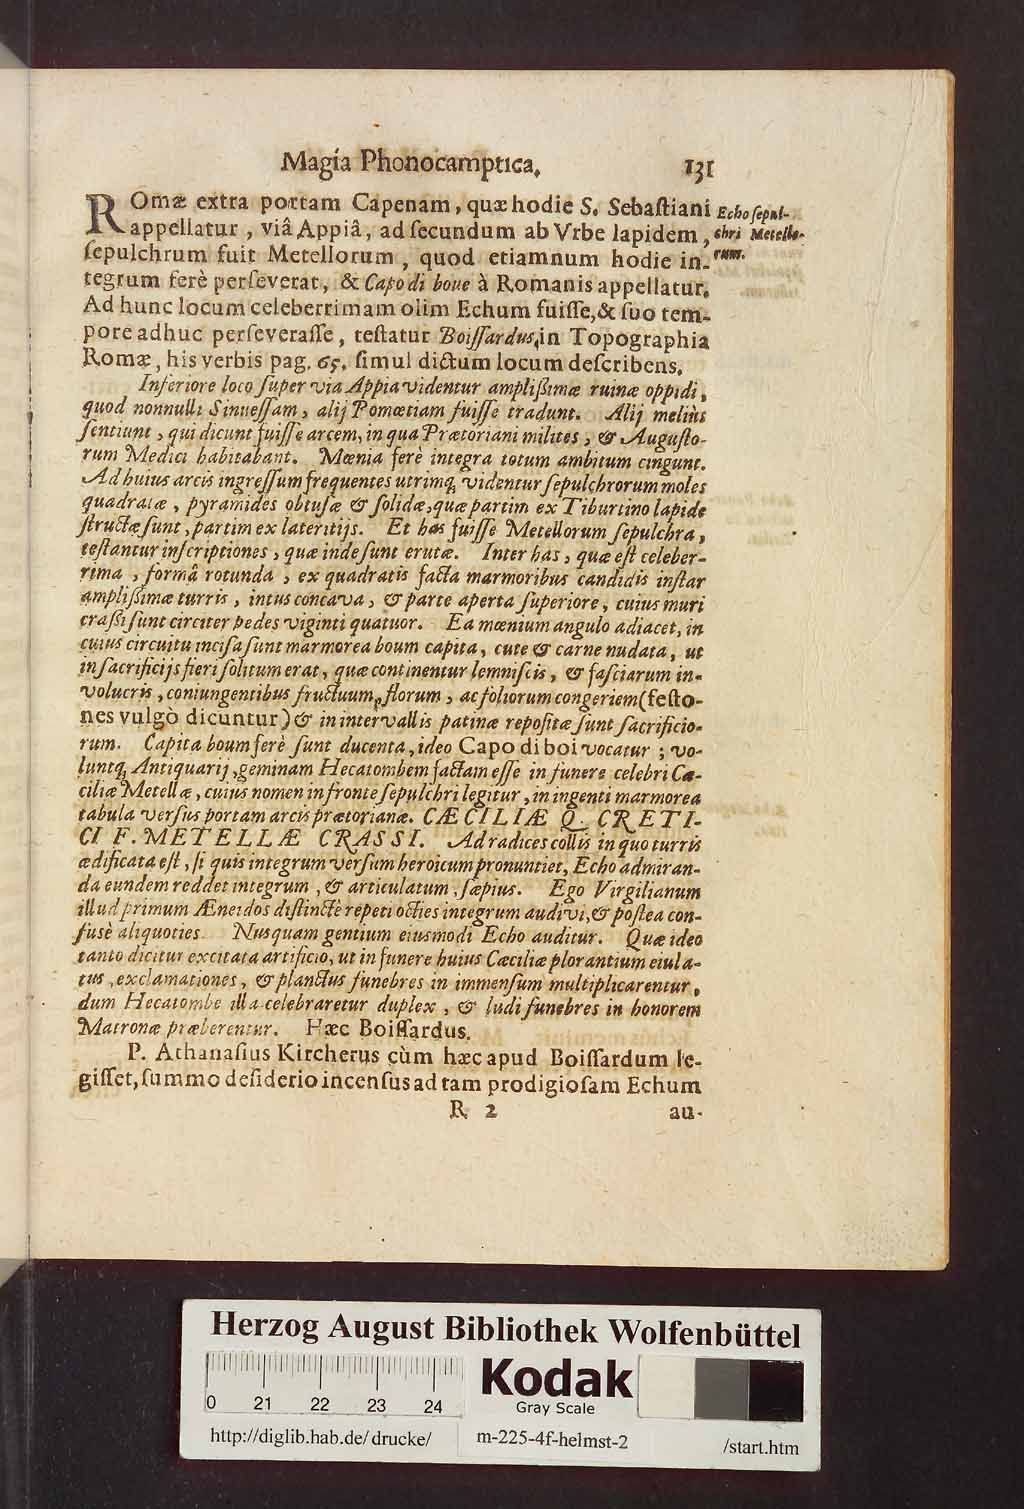 Magia Phonocamptica. 131
ROmæ extra portam Capenam, quæ hodie S. Sebaſtiani
appellatur, viâ Appiâ, ad ſecundum ab Vrbe lapidem,
ſepulchrum fuit Metellorum, quod etiamnum hodie in-
tegrum ferè perſeverat, & Capo di boue à Romanis appellatur.
Ad hunc locum celeberrimam olim Echum fuiſſe, & ſuo tem-
pore adhuc perſeveraſſe, teſtatur Boiſſardus, in Topographia
Romæ, his verbis pag. 65. ſimul dictum locum deſcribens.
Echo ſepul-
chri Metello-
rum.
Inferiore loco ſuper via Appia videntur ampliſsimæ ruinæ oppidi,
quod nonnulli Sinueſſam, alij Pomœtiam fuiſſe tradunt. Alij meliùs
ſentiunt, qui dicunt fuiſſe arcem, in qua Prætoriani milites, & Auguſto-
rum Medici habitabant. Mœnia ferè integra totum ambitum cingunt.
Ad huius arcis ingreſſum frequentes utrimq; videntur ſepulchrorum moles
quadratæ, pyramides obtuſæ & ſolidæ, quæ partim ex Tiburtino lapide
ſtructæ ſunt, partim ex lateritijs. Et has fuiſſe Metellorum ſepulchra,
teſtantur inſcriptiones, quæ inde ſunt erutæ. Inter has, quæ eſt celeber-
rima, formâ rotunda, ex quadratis facta marmoribus candidis inſtar
ampliſsimæ turris, intus concava, & parte aperta ſuperiore, cuius muri
craſsi ſunt circiter pedes viginti quatuor. Ea mœnium angulo adiacet, in
cuius circuitu inciſa ſunt marmorea boum capita, cute & carne nudata, ut
in ſacrificijs fieri ſolitum erat, quæ continentur lemniſcis, & faſciarum in-
volucris, coniungentibus fructuum, florum, ac foliorum congeriem (feſto-
nes vulgò dicuntur) & in intervallis patinæ repoſitæ ſunt ſacrificio-
rum. Capita boum ferè ſunt ducenta, ideo Capo di boi vocatur; vo-
luntq; Antiquarij, geminam Hecatombem factam eſſe in funere celebri Cæ-
ciliæ Metellæ, cuius nomen in fronte ſepulchri legitur, in ingenti marmorea
tabula verſus portam arcis prætorianæ. CÆCILIÆ Q. CRETI-
CI F. METELLÆ CRASSI. Ad radices collis in quo turris
ædificata eſt, ſi quis integrum verſum heroicum pronuntiet, Echo admiran-
da eundem reddet integrum, & articulatum, ſæpius. Ego Virgilianum
illud primum Æneidos diſtinctè repeti octies integrum audivi, & poſtea con-
fusè aliquoties. Nusquam gentium eiusmodi Echo auditur. Quæ ideo
tanto dicitur excitata artificio, ut in funere huius Cæciliæ plorantium eiula-
tus, exclamationes, & planctus funebres in immenſum multiplicarentur,
dum Hecatombe illa celebraretur duplex, & ludi funebres in honorem
Matronæ præberentur. Hæc Boiſſardus.
P. Athanaſius Kircherus cùm hæc apud Boiſſardum le-
giſſet, ſummo deſiderio incenſus ad tam prodigioſam Echum
R 2 au-
Herzog August Bibliothek Wolfenbüttel
0 21 22 23 24
Kodak
Gray Scale
http://diglib.hab.de/drucke/ m-225-4f-helmst-2 /start.htm